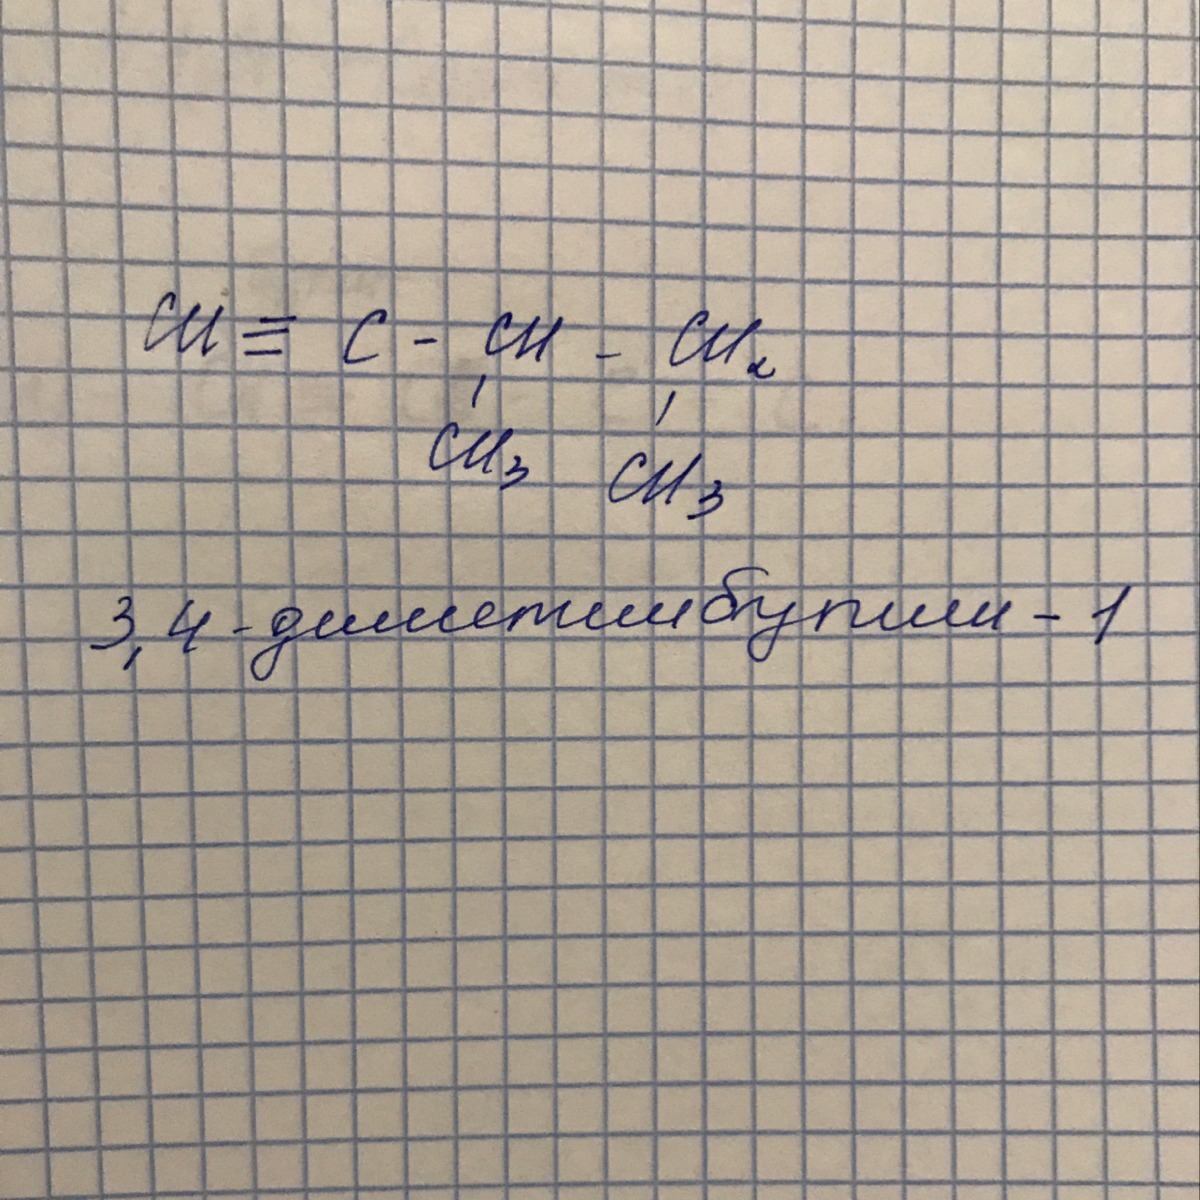 CH ≡ C - CH - CH2
CH3 CH3
3,4-диметилбутин-1